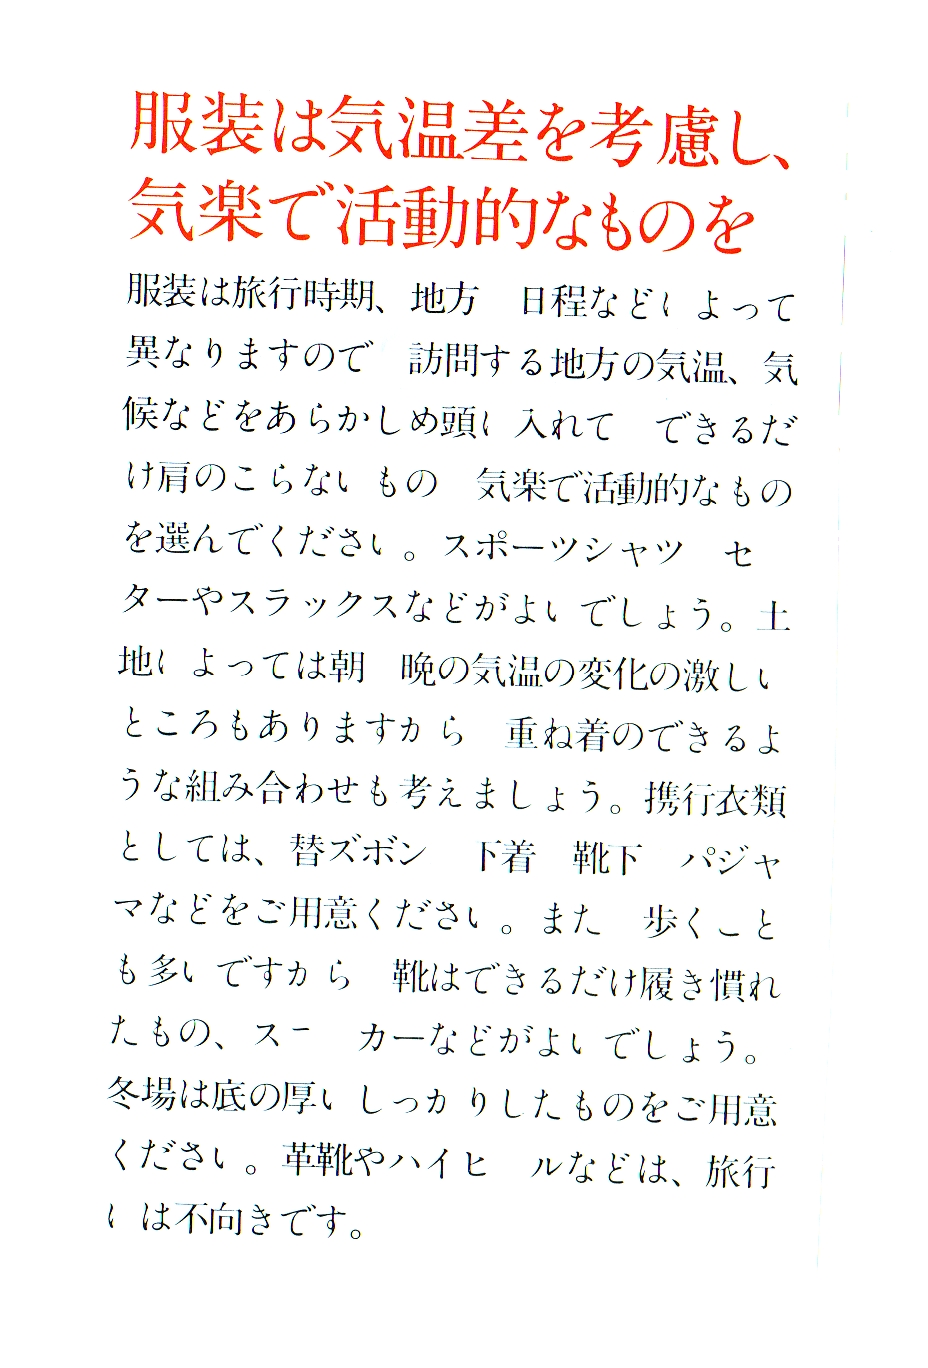 服装は気温差を考慮し、
気楽で活動的なものを
服装は旅行時期、地方　日程などによって
異なりますので　訪問する地方の気温、気
候などをあらかしめ頭に入れて　できるだ
け肩のこらないもの　気楽で活動的なもの
を選んでください。スポーツシャツ　セ
ターやスラックスなどがよいでしょう。土
地によっては朝　晩の気温の変化の激しい
ところもありますから　重ね着のできるよ
うな組み合わせも考えましょう。携行衣類
としては、替ズボン　下着　靴下　パジャ
マなどをご用意ください。また　歩くこと
も多いですから　靴はできるだけ履き慣れ
たもの、スニーカーなどがよいでしょう。
冬場は底の厚いしっかりしたものをご用意
ください。革靴やハイヒ　ルなどは、旅行
には不向きです。